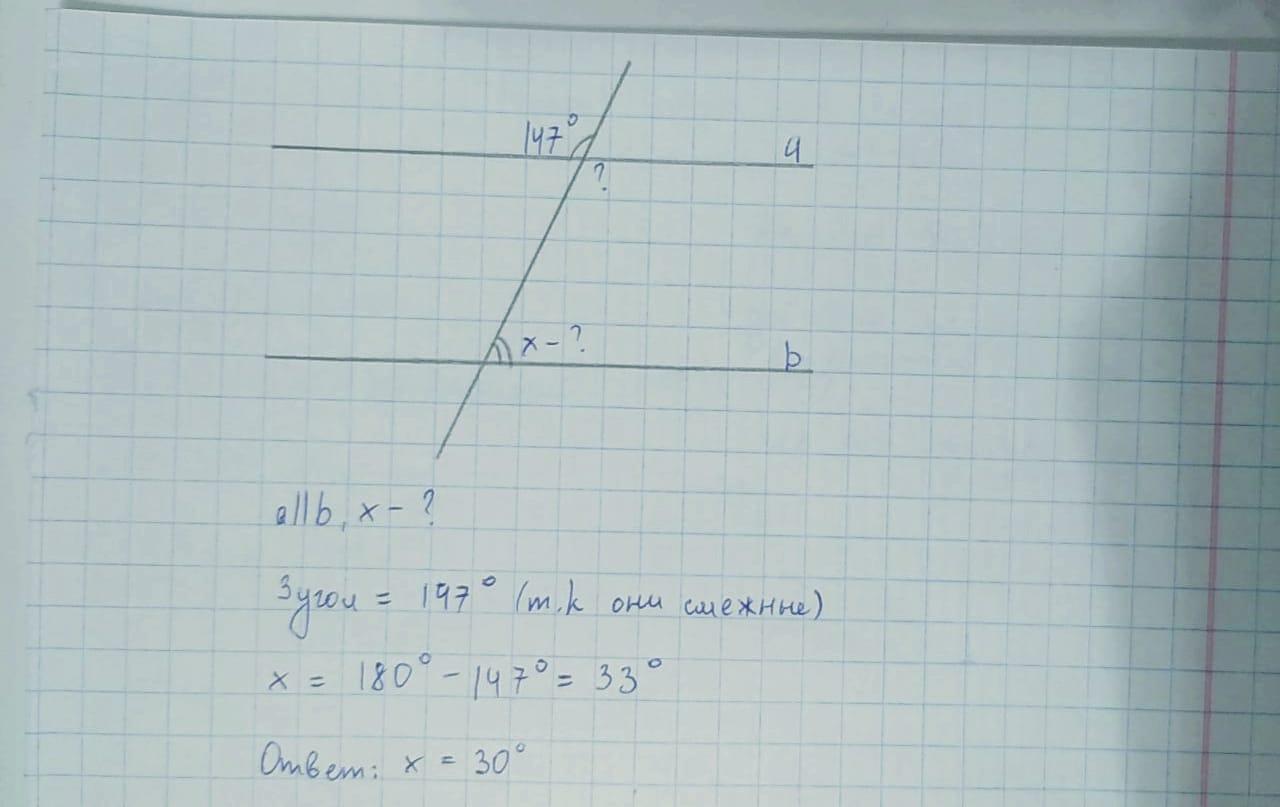 147°
a
?
x - ?
b
a||b, x - ?
3 угол = 197° (т.к они смежные)
x = 180° - 147° = 33°
Ответ: x = 30°